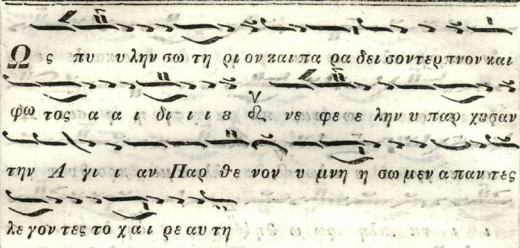 Ως πυ υ λην σω τη ρι ον και πα ρα δει σον τερ πνον και
φω τος α α ι δι ι ι ε νε φε ε λην υ παρ χεσαν
την Α γι ι αν Παρ θε νον υ μνη η σω μεν α παν τες
λε γον τες το χα ι ρε αυ τη